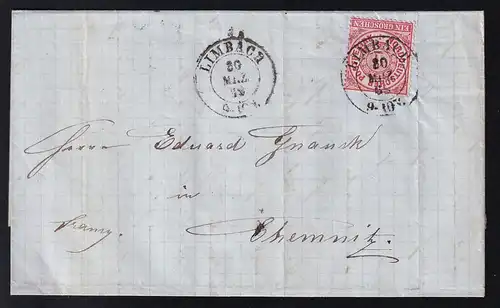 LIMBACH
20
MRZ
9-10V.
EIN GROSCHEN
LIMBACH
20
MRZ
9-10V.
Herrn Eduard Gnauck
in
Chemnitz.